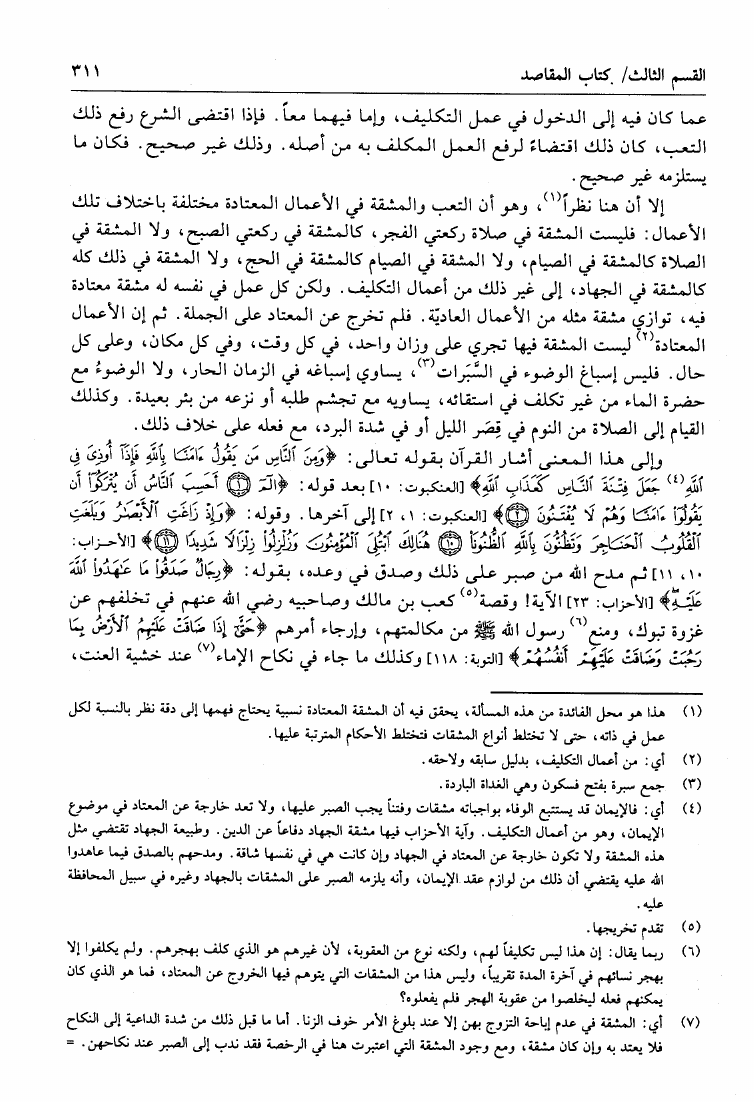 القسم الثالث/ كتاب المقاصد ٣١١
عما كان فيه إلى الدخول في عمل التكليف، وإما فيهما معاً. فإذا اقتضى الشرع رفع ذلك
التعب، كان ذلك اقتضاءً لرفع العمل المكلف به من أصله. وذلك غير صحيح. فكان ما
يستلزمه غير صحيح.
إلا أن هنا نظراً(١)، وهو أن التعب والمشقة في الأعمال المعتادة مختلفة باختلاف تلك
الأعمال: فليست المشقة في صلاة ركعتي الفجر، كالمشقة في ركعتي الصبح، ولا المشقة في
الصلاة كالمشقة في الصيام، ولا المشقة في الصيام كالمشقة في الحج، ولا المشقة في ذلك كله
كالمشقة في الجهاد، إلى غير ذلك من أعمال التكليف. ولكن كل عمل في نفسه له مشقة معتادة
فيه، توازي مشقة مثله من الأعمال العاديّة. فلم تخرج عن المعتاد على الجملة. ثم إن الأعمال
المعتادة(٢) ليست المشقة فيها تجري على وزان واحد، في كل وقت، وفي كل مكان، وعلى كل
حال. فليس إسباغ الوضوء في السَّبَرات(٣)، يساوي إسباغه في الزمان الحار، ولا الوضوءُ مع
حضرة الماء من غير تكلف في استقائه، يساويه مع تجشم طلبه أو نزعه من بئر بعيدة. وكذلك
القيام إلى الصلاة من النوم في قِصَر الليل أو في شدة البرد، مع فعله على خلاف ذلك.
وإلى هذا المعنى أشار القرآن بقوله تعالى: ﴿وَمِنَ النَّاسِ مَن يَقُولُ ءَامَنَّا بِاللَّهِ فَإِذَآ أُوذِيَ فِي
اللَّهِ(٤) جَعَلَ فِتْنَةَ النَّاسِ كَعَذَابِ اللَّهِ﴾ [العنكبوت: ١٠] بعد قوله: ﴿الٓمٓ ۝١ أَحَسِبَ النَّاسُ أَن يُتْرَكُوٓا۟ أَن
يَقُولُوٓا۟ ءَامَنَّا وَهُمْ لَا يُفْتَنُونَ ۝٢﴾ [العنكبوت: ١، ٢] إلى آخرها. وقوله: ﴿وَإِذْ زَاغَتِ الْأَبْصَٰرُ وَبَلَغَتِ
الْقُلُوبُ الْحَنَاجِرَ وَتَظُنُّونَ بِاللَّهِ الظُّنُونَا۠ ۝١٠ هُنَالِكَ ابْتُلِيَ الْمُؤْمِنُونَ وَزُلْزِلُوا۟ زِلْزَالًا شَدِيدًا ۝١١﴾ [الأحزاب:
١٠، ١١] ثم مدح الله من صبر على ذلك وصدق في وعده، بقوله: ﴿رِجَالٌ صَدَقُوا۟ مَا عَٰهَدُوا۟ اللَّهَ
عَلَيْهِ﴾ [الأحزاب: ٢٣] الآية! وقصة(٥) كعب بن مالك وصاحبيه رضي الله عنهم في تخلفهم عن
غزوة تبوك، ومنع(٦) رسول الله ﷺ من مكالمتهم، وإرجاء أمرهم ﴿حَتَّىٰٓ إِذَا ضَاقَتْ عَلَيْهِمُ الْأَرْضُ بِمَا
رَحُبَتْ وَضَاقَتْ عَلَيْهِمْ أَنفُسُهُمْ﴾ [التوبة: ١١٨] وكذلك ما جاء في نكاح الإماء(٧) عند خشية العنت،
(١) هذا هو محل الفائدة من هذه المسألة، يحقق فيه أن المشقة المعتادة نسبية يحتاج فهمها إلى دقة نظر بالنسبة لكل
عمل في ذاته، حتى لا تختلط أنواع المشقات فتختلط الأحكام المترتبة عليها.
(٢) أي: من أعمال التكليف، بدليل سابقه ولاحقه.
(٣) جمع سبرة بفتح فسكون وهي الغداة الباردة.
(٤) أي: فالإيمان قد يستتبع الوفاء بواجباته مشقات وفتناً يجب الصبر عليها، ولا تعد خارجة عن المعتاد في موضوع
الإيمان، وهو من أعمال التكليف. وآية الأحزاب فيها مشقة الجهاد دفاعاً عن الدين. وطبيعة الجهاد تقتضي مثل
هذه المشقة ولا تكون خارجة عن المعتاد في الجهاد وإن كانت هي في نفسها شاقة. ومدحهم بالصدق فيما عاهدوا
الله عليه يقتضي أن ذلك من لوازم عقد الإيمان، وأنه يلزمه الصبر على المشقات بالجهاد وغيره في سبيل المحافظة
عليه.
(٥) تقدم تخريجها.
(٦) ربما يقال: إن هذا ليس تكليفاً لهم، ولكنه نوع من العقوبة، لأن غيرهم هو الذي كلف بهجرهم. ولم يكلفوا إلا
بهجر نسائهم في آخرة المدة تقريباً، وليس هذا من المشقات التي يتوهم فيها الخروج عن المعتاد، فما هو الذي كان
يمكنهم فعله ليخلصوا من عقوبة الهجر فلم يفعلوه؟
(٧) أي: المشقة في عدم إباحة التزوج بهن إلا عند بلوغ الأمر خوف الزنا. أما ما قبل ذلك من شدة الداعية إلى النكاح
فلا يعتد به وإن كان مشقة، ومع وجود المشقة التي اعتبرت هنا في الرخصة فقد ندب إلى الصبر عند نكاحهن. =